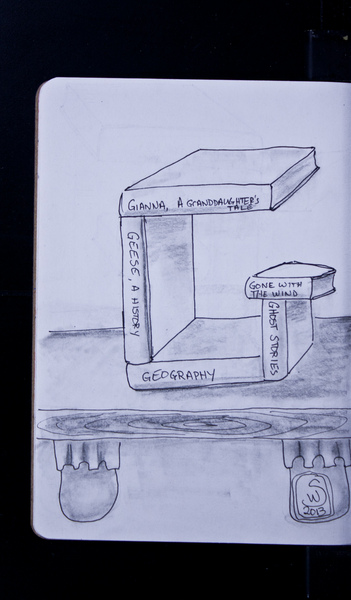 GIANNA, A GRANDDAUGHTER'S
TALE
GEESE, A HISTORY
GONE WITH
THE WIND
GHOST STORIES
GEOGRAPHY
SW
2013